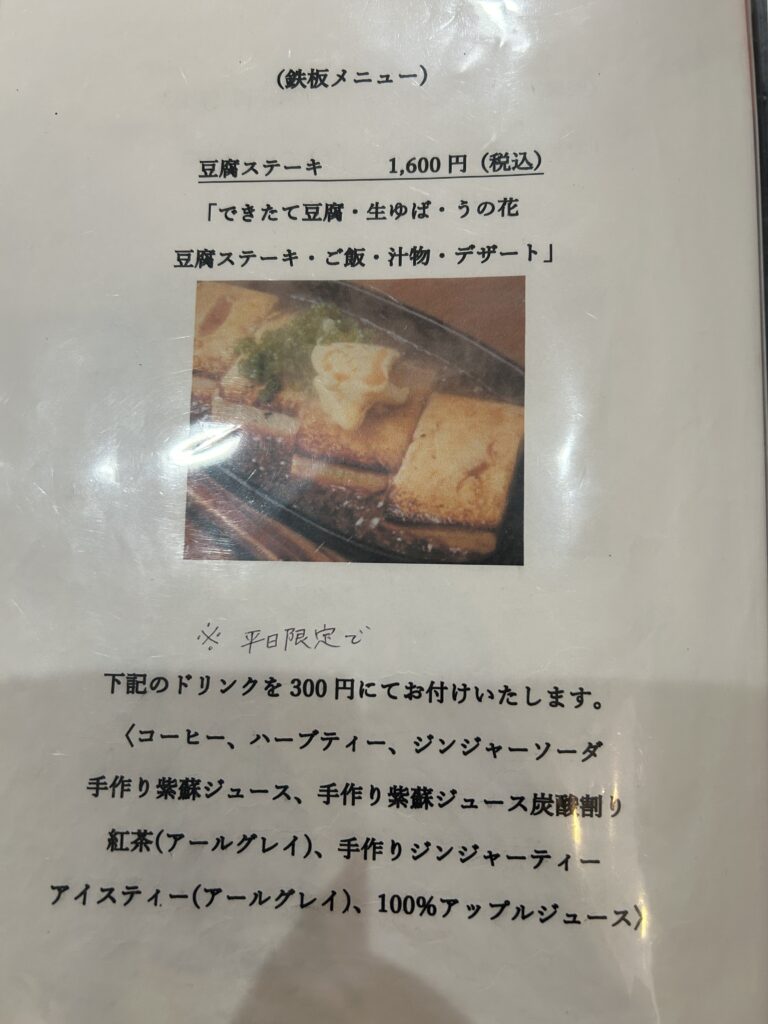 (鉄板メニュー)
豆腐ステーキ 1,600円（税込）
「できたて豆腐・生ゆば・うの花
豆腐ステーキ・ご飯・汁物・デザート」
※ 平日限定で
下記のドリンクを300円にてお付けいたします。
〈コーヒー、ハーブティー、ジンジャーソーダ
手作り紫蘇ジュース、手作り紫蘇ジュース炭酸割り
紅茶(アールグレイ)、手作りジンジャーティー
アイスティー(アールグレイ)、100%アップルジュース〉